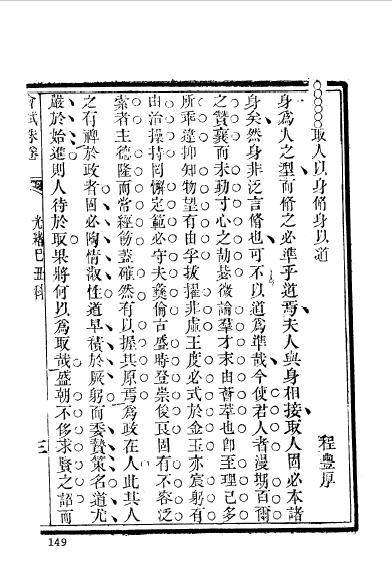 取人以身脩身以道
程豐厚
身爲人之型而脩之必準乎道焉夫人與身相接取人固必本諸
身矣然身非泛言脩也可不以道爲準哉今使君人者漫期百爾
之贊襄而未勤寸心之劼毖微論羣才未由薈萃也卽至理已多
所乖違抑知物望有由孚拔擢非虛王度必式於金玉亦宸躬有
由治操持罔懈定範必守夫彝倫古盛時登崇俊良固有不容泛
索者主德隆而常經飭蓋確然有以握其原焉爲政在人此其人
之有裨於政者固必陶情淑性道早積於厥躬而委贄策名道尤
嚴於始進則人待於取果將何以爲取哉盛朝不侈求賢之詔而
會試硃卷
光緒己丑科
三
149